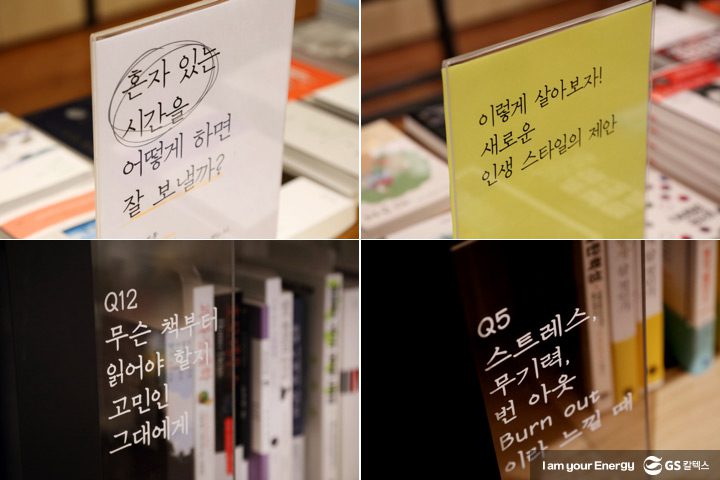 혼자 있는
시간을
어떻게 하면
잘 보낼까?
이렇게 살아보자!
새로운
인생 스타일의 제안
Q12
무슨 책부터
읽어야 할지
고민인
그대에게
Q5
스트레스,
무기력,
번 아웃
Burn out
이라 느낄 때
I am your Energy GS칼텍스